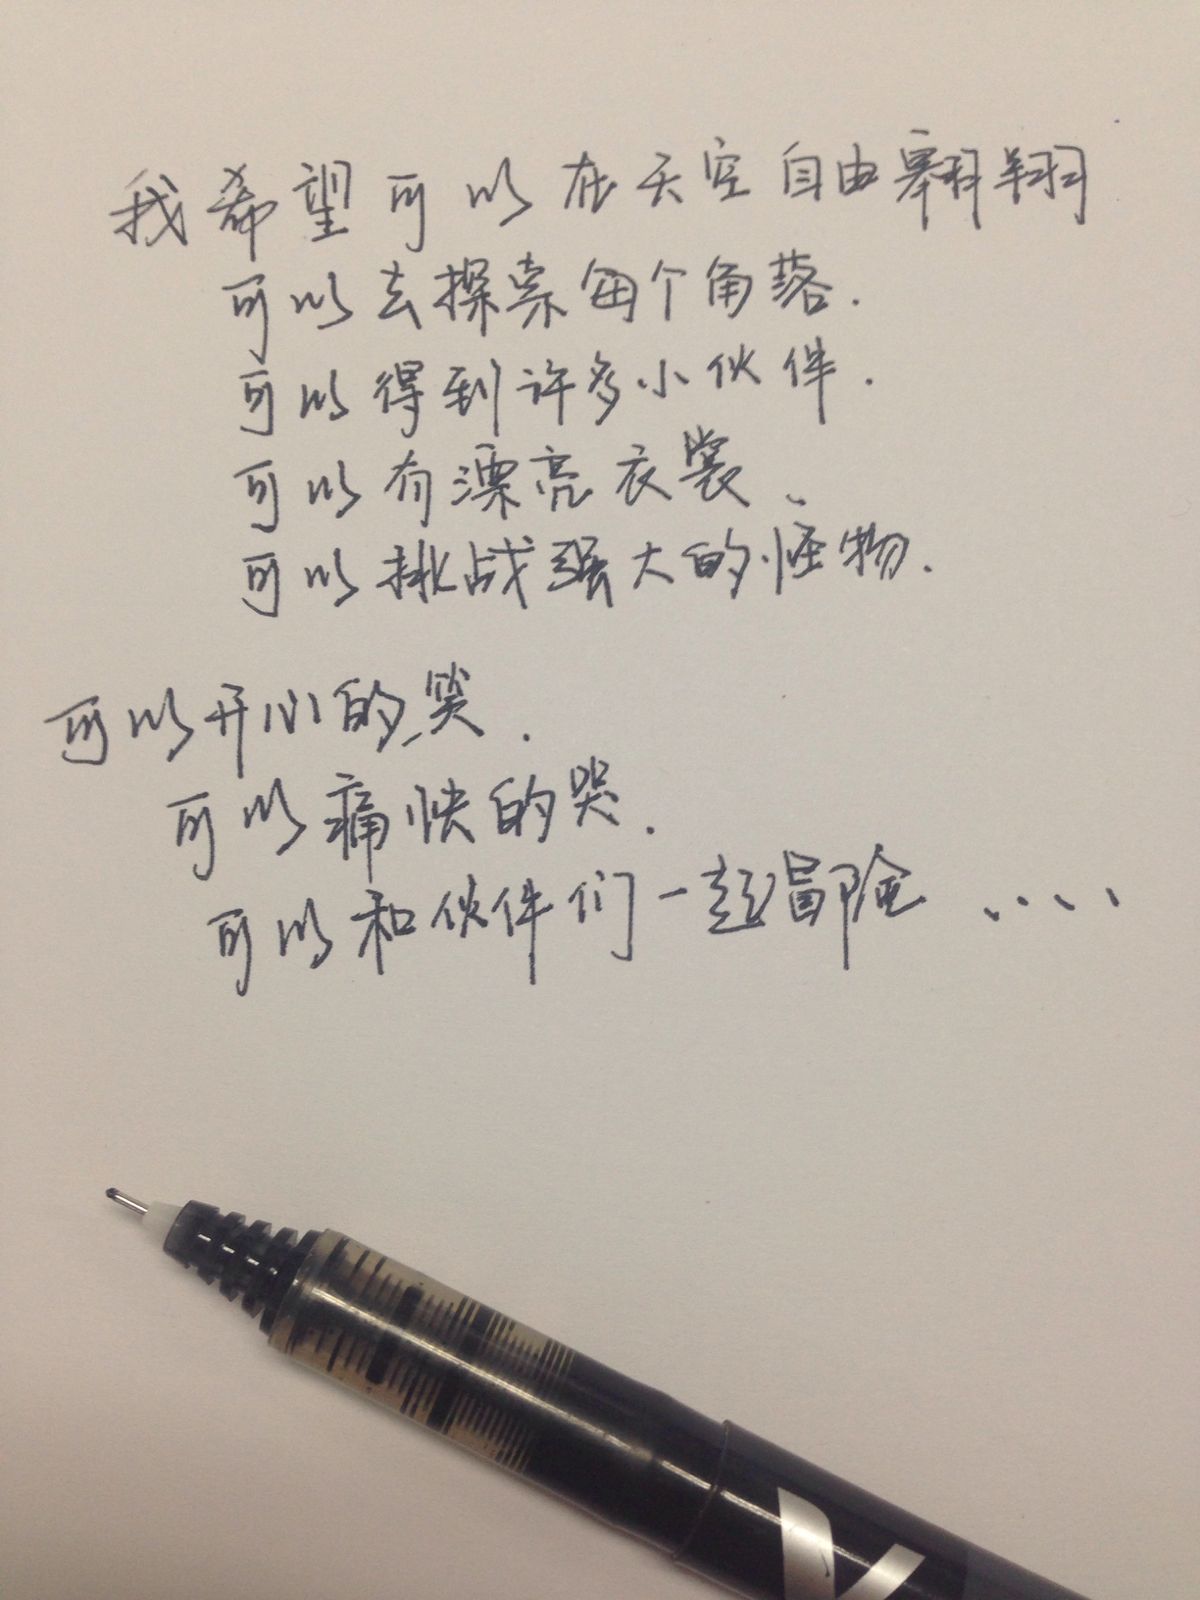 我希望可以在天空自由翱翔
可以去探索每个角落.
可以得到许多小伙伴.
可以有漂亮衣裳、
可以挑战强大的怪物.
可以开心的笑.
可以痛快的哭.
可以和伙伴们一起冒险....